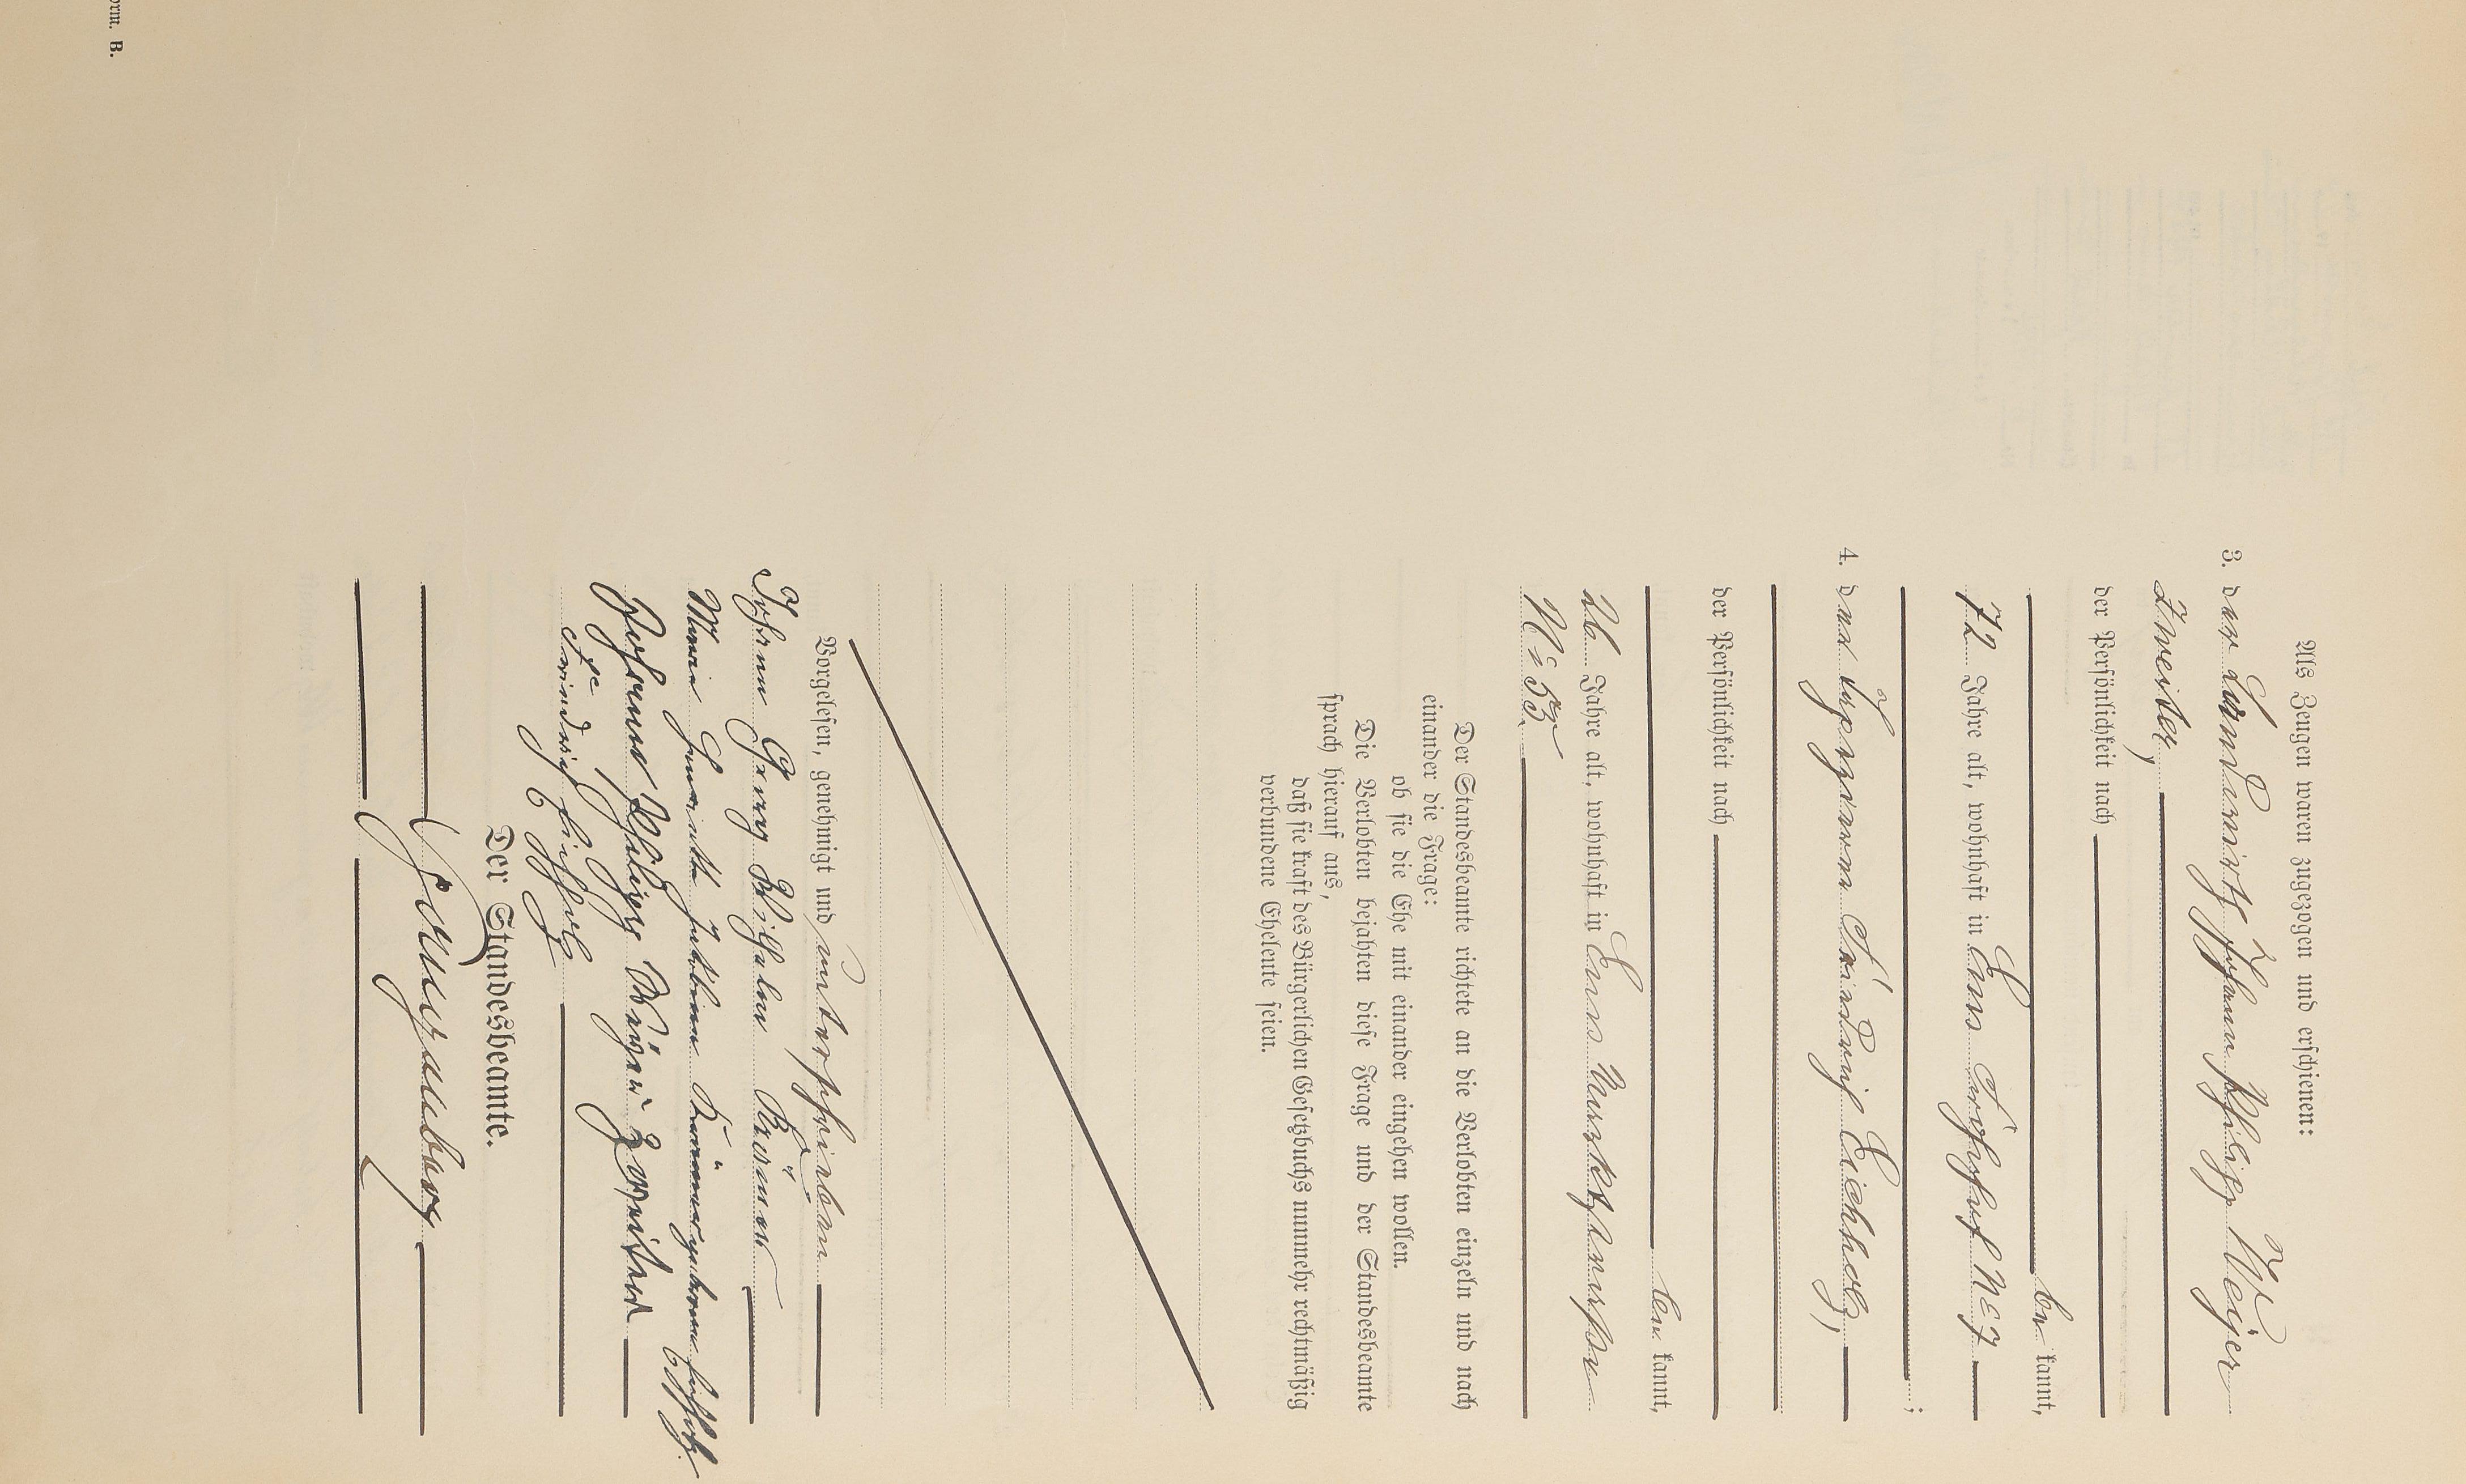 Als Zeugen waren zugezogen und erschienen:
3. der Landwirth Johann Philipp Weyer
Zweiter,
der Persönlichkeit nach
be kannt,
72 Jahre alt, wohnhaft in Ems № 7
4. der Ludwig Eichholz,
;
der Persönlichkeit nach
be kannt,
26 Jahre alt, wohnhaft in Ems
№ 53.
Der Standesbeamte richtete an die Verlobten einzeln und nach
einander die Frage:
ob sie die Ehe mit einander eingehen wollen.
Die Verlobten bejahten diese Frage und der Standesbeamte
sprach hierauf aus,
daß sie kraft des Bürgerlichen Gesetzbuchs nunmehr rechtmäßig
verbundene Eheleute seien.
Vorgelesen, genehmigt und unterschrieben
Johann Georg Wilhelm
Maria geborene Eichholz
Johann Philipp Weyer Zweiter
Ludwig Eichholz
Der Standesbeamte.
orm. B.